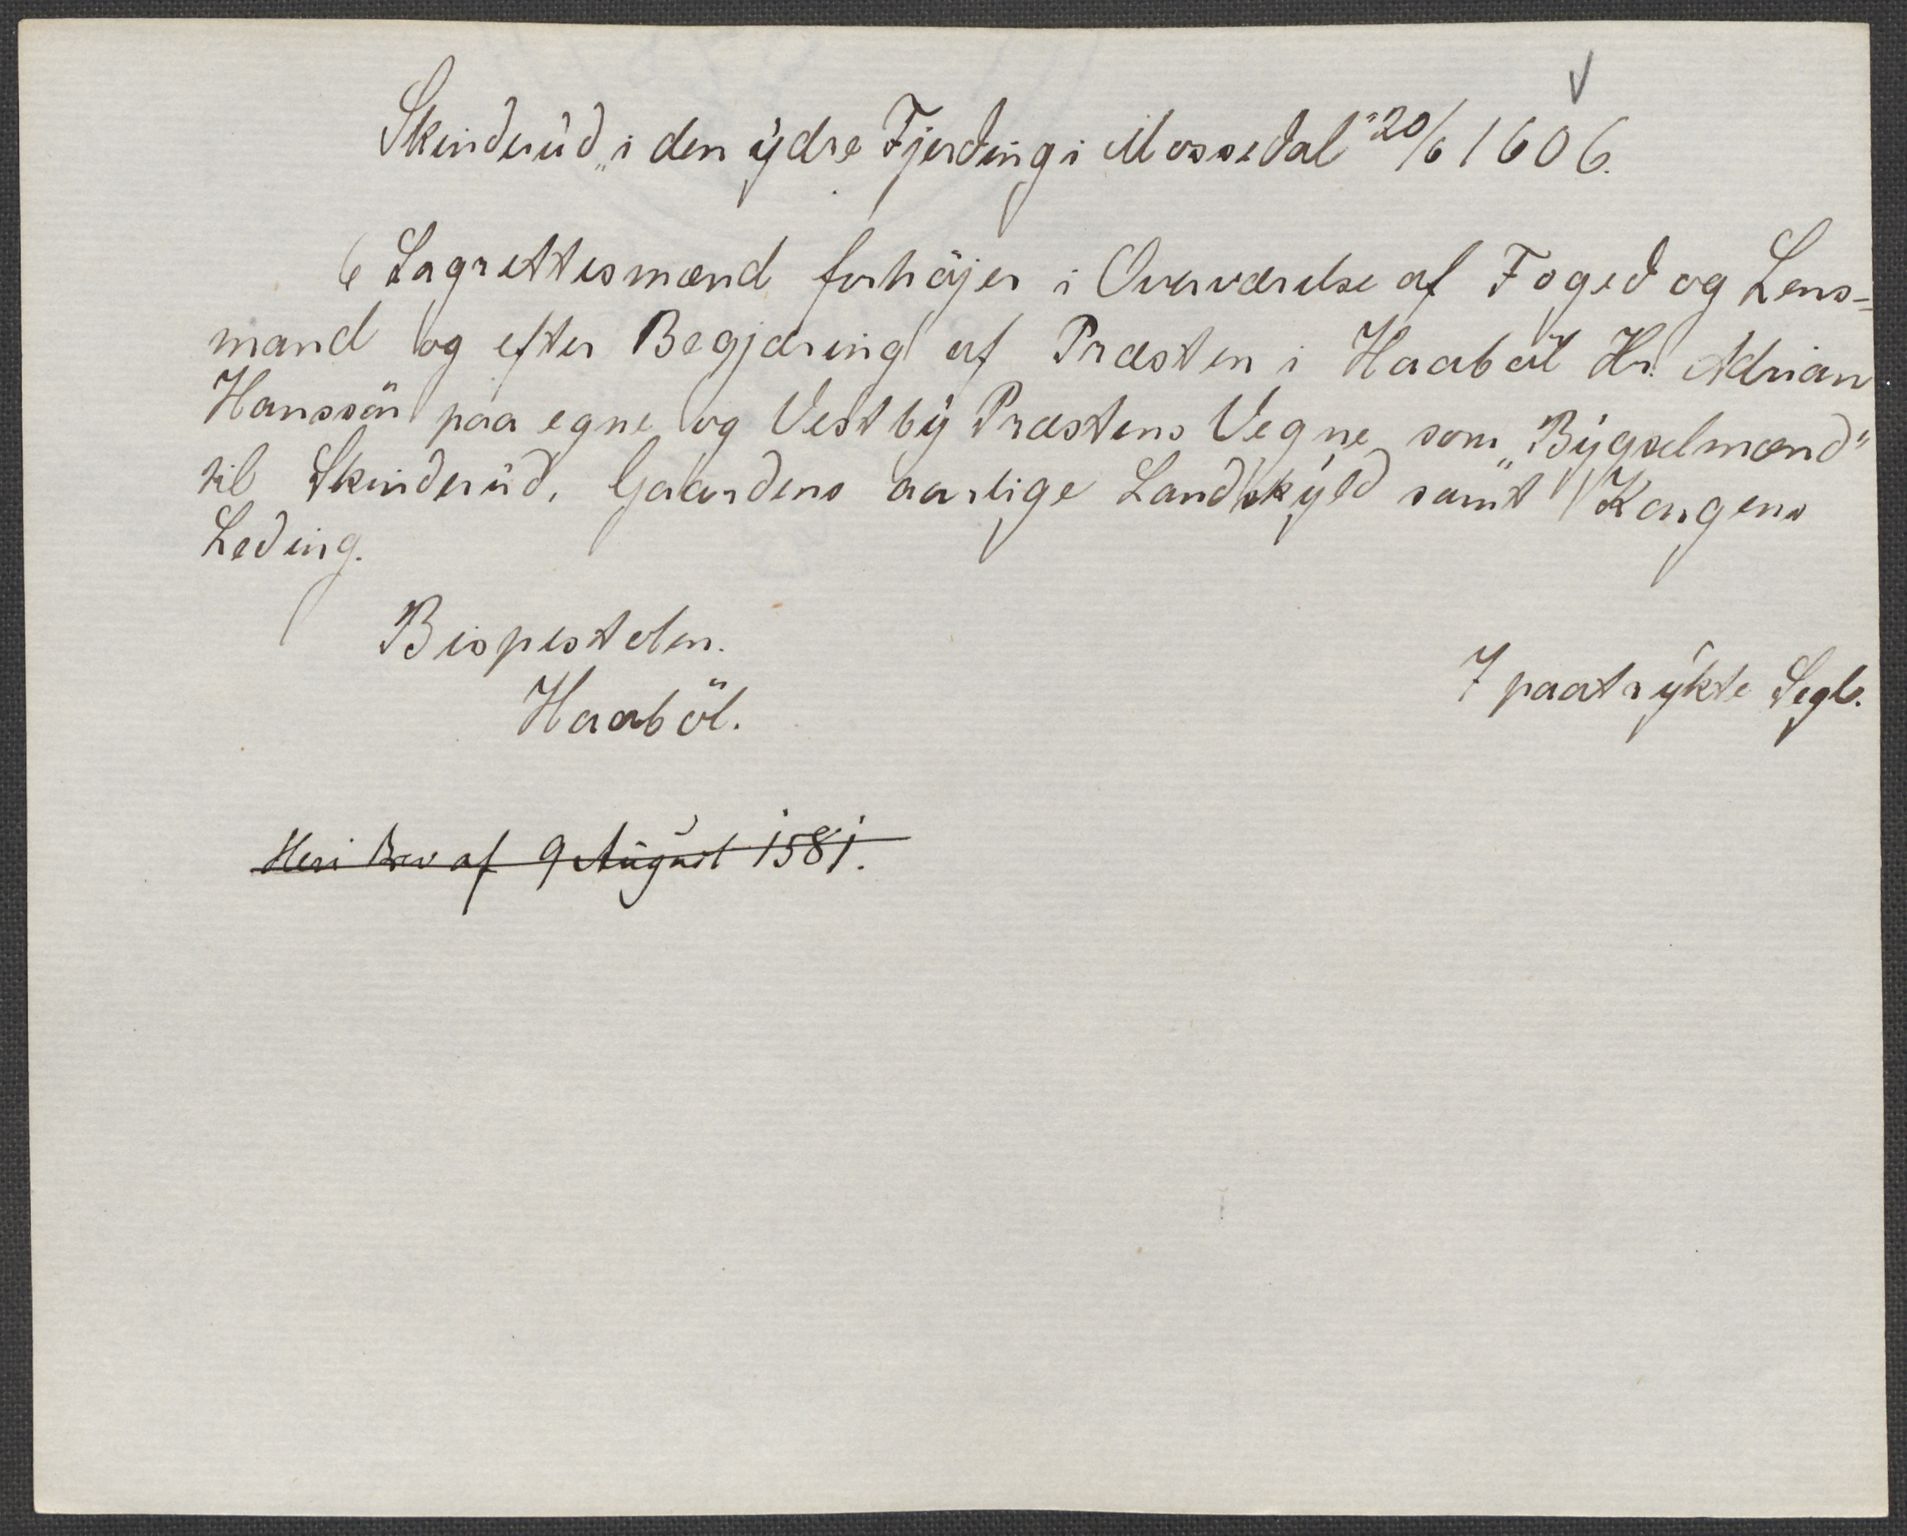 Skinderud „i den ydre Fjerding i Mossedal“ 20/6 1606.
6 Lagrettesmænd forhöjer i Overværelse af Foged og Lens-
mand og efter Begjæring af Præsten i Haaböl Hr. Adrian
Hanssön paa egne og Vestby Præstens Vegne som „Bygselmænd“
til Skinderud, Gaardens aarlige Landskyld samt Kongens
Leding.
Bispestolen.
Haaböl.
7 paatrykte Segl.
Heri Brev af 9 August 1581.